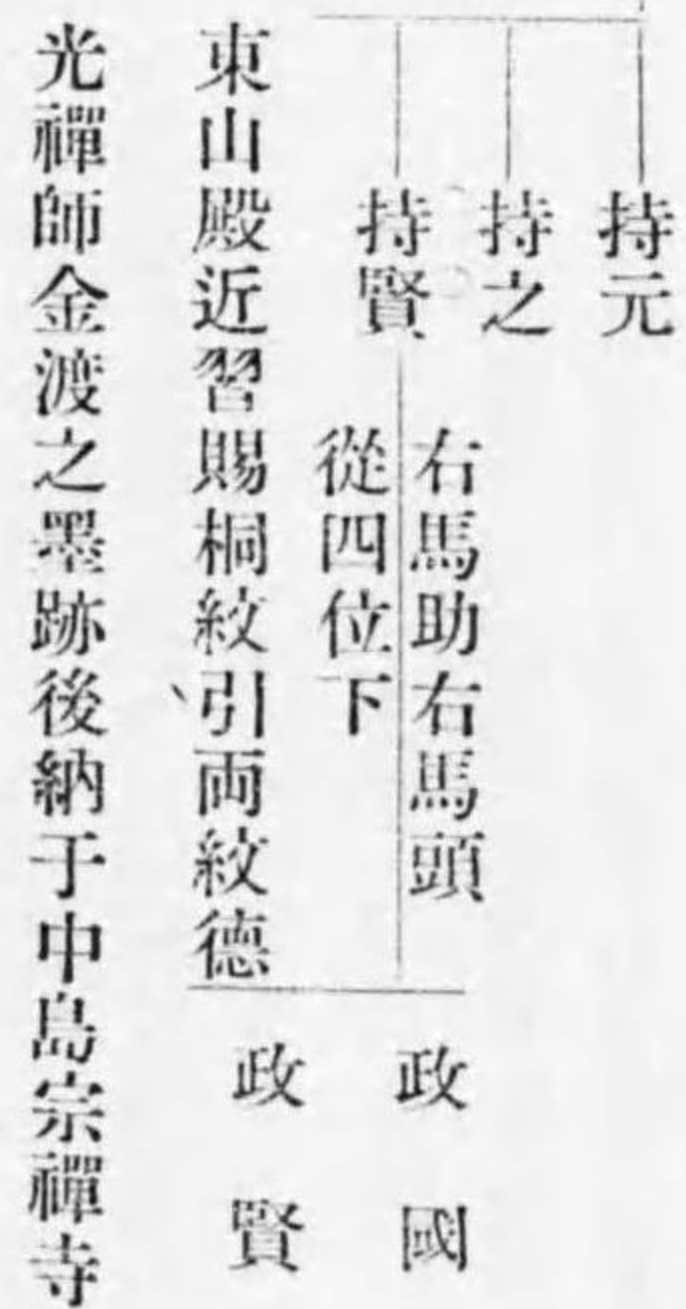 持元
持之
持賢
右馬助右馬頭
從四位下
政國
政賢
東山殿近習賜桐紋引両紋德
光禪師金渡之墨跡後納于中島宗禪寺